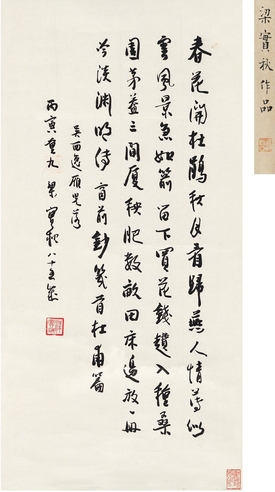 春花聞杜鵑秋月看歸燕人情薄似
雲風景急如箭留下買花錢趲入種桑
園茅蓋三間廈秧肥數畝田床邊放一冊
冷淡淵明傳窗前鈔幾首杜甫篇
吳西逸雁兒落
丙寅重九梁實秋八十五歲
梁實秋作品